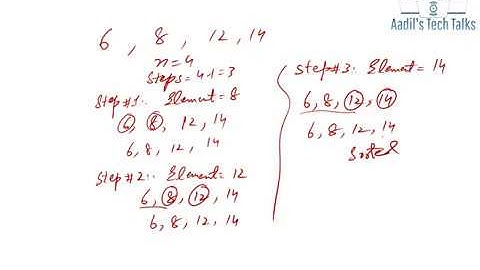 Aadil's Tech Talks
6 , 8 , 12 , 14
n = 4
Steps = 4-1 = 3
Step #1:. Element = 8
6, 8, 12, 14
6, 8, 12, 14
Step #2:. Element = 12
6, 8, 12, 14
6, 8, 12, 14
Step #3:. Element = 14
6, 8, 12, 14
6, 8, 12, 14
Sorted